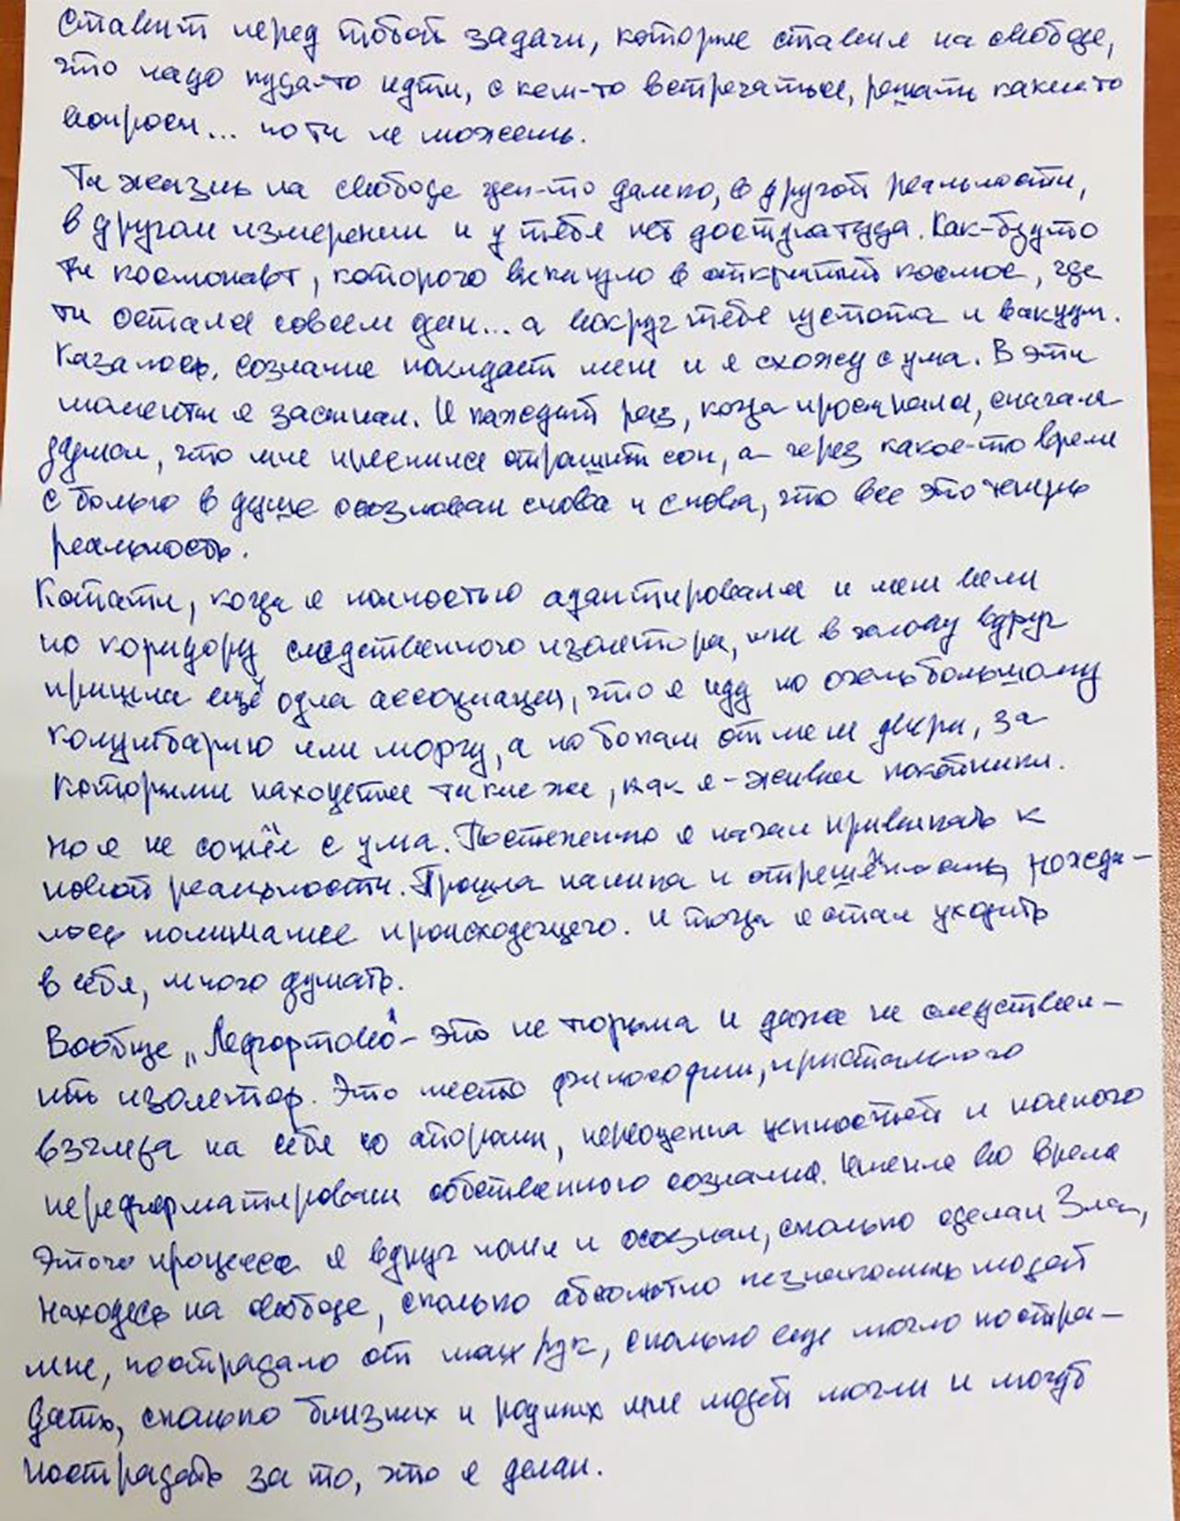 ставит перед тобой задачи, которые ставил на свободе,
что надо куда-то идти, с кем-то встречаться, решать какие-то
вопросы... но ты не можешь.
Ты жизнь на свободе где-то далеко, в другой реальности,
в другом измерении и у тебя нет доступа туда. Как-будто
ты космонавт, которого выкинуло в открытый космос, где
ты остался совсем один... а вокруг тебя пустота и вакуум.
Казалось, сознание покидает меня и я схожу с ума. В эти
моменты я засыпал. И каждый раз, когда просыпался, сначала
думал, что мне приснился страшный сон, а через какое-то время
с болью в душе осознавал снова и снова, что все это теперь
реальность.
Кстати, когда я полностью адаптировался и меня вели
по коридору следственного изолятора, мне в голову вдруг
пришла ещё одна ассоциация, что я иду по очень большому
колумбарию или моргу, а по бокам от меня двери, за
которыми находятся такие же, как я - живые покойники.
Но я не сошёл с ума. Постепенно я начал привыкать к
новой реальности. Прошла паника и отрешённость,
лось понимание происходящего. И тогда я стал уходить
в себя, много думать.
Вообще „Лефортово“ - это не тюрьма и даже не следствен-
ный изолятор. Это место философии, пристального
взгляда на себя со стороны, переоценки ценностей и полного
переформатирования собственного сознания. Именно во время
этого процесса я вдруг понял и осознал, сколько сделал Зла,
находясь на свободе, сколько абсолютно незнакомых людей
мне, пострадало от моих рук, сколько еще могло постра-
дать, сколько близких и родных мне людей могли и могут
пострадать за то, что я делал.